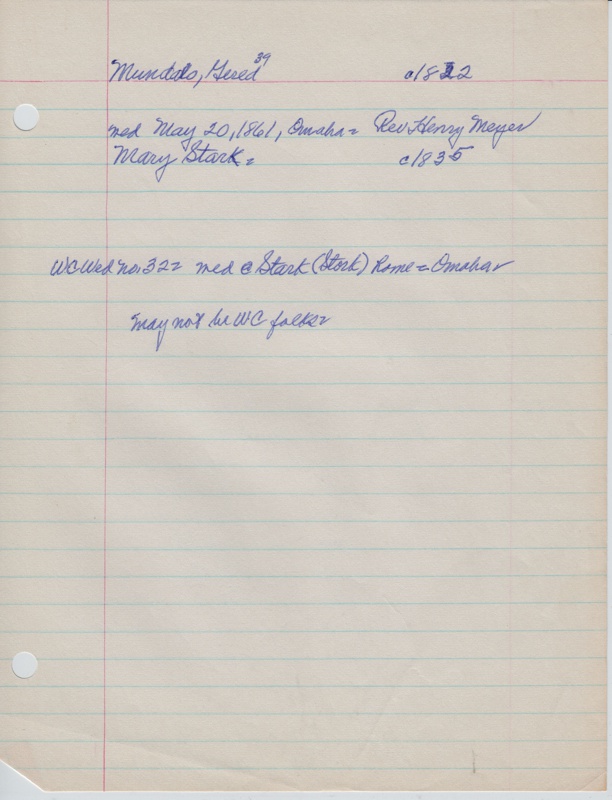 Mundals, Gered 39 c1822
med May 20, 1861, Omaha = Rev. Henry Meyer
Mary Stark = c1835
WC Wed no. 32 = med @ Stark (Stork) Rome = Omaha
may not be WC folks